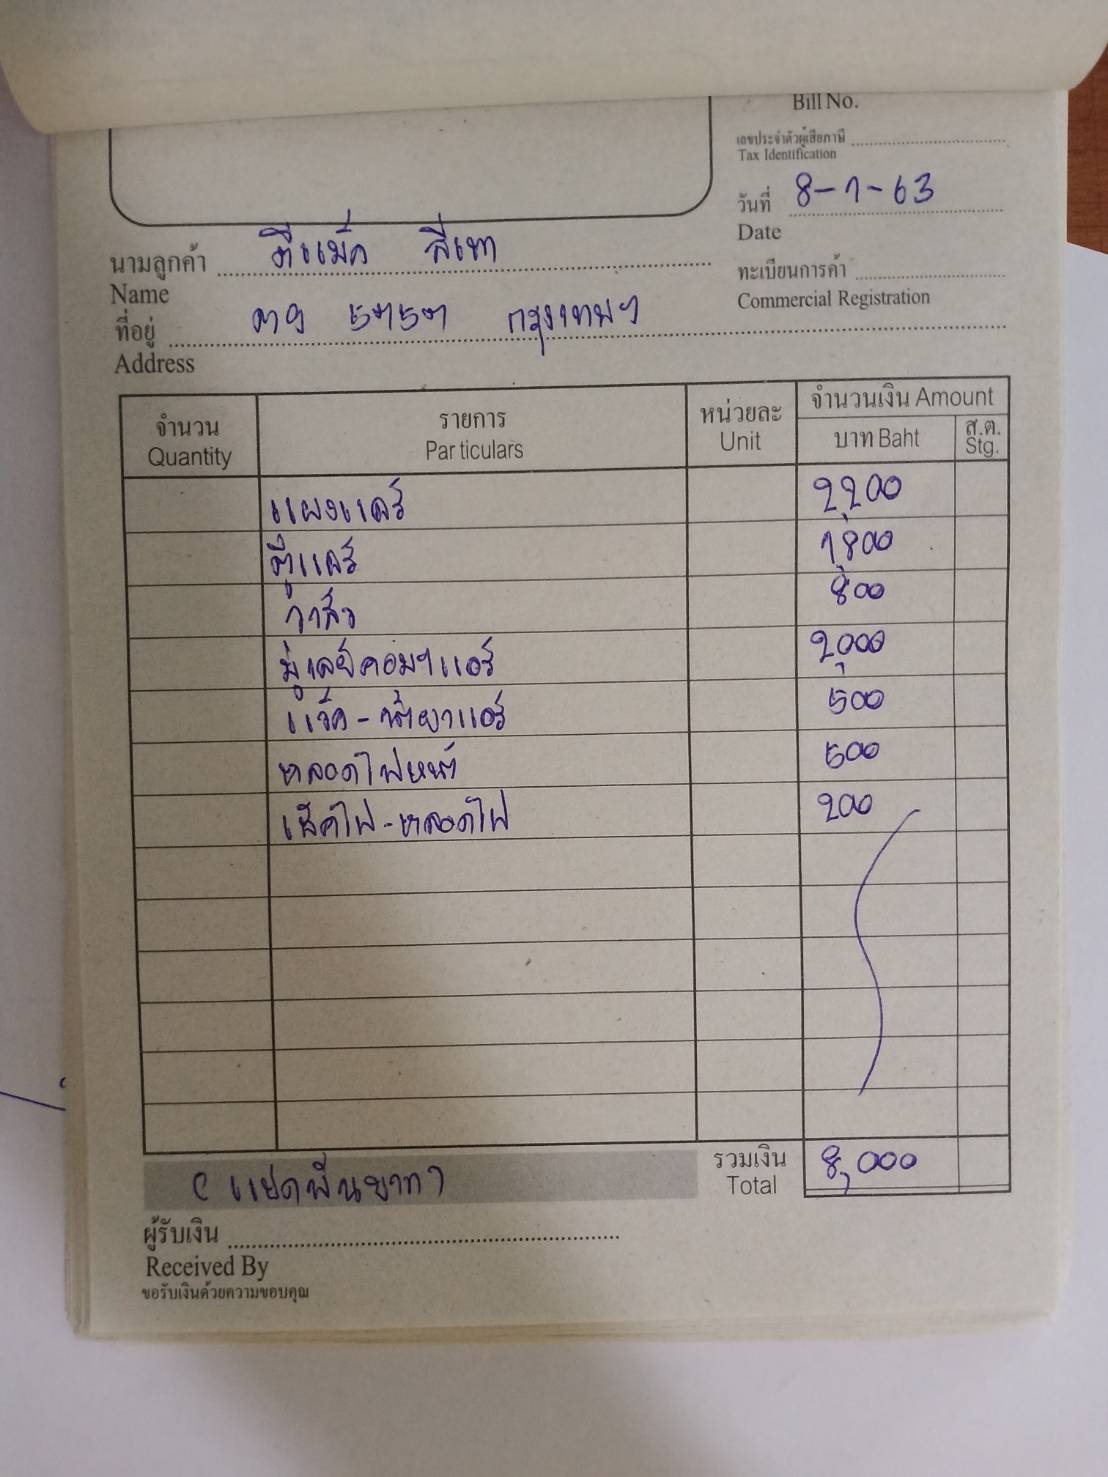 Bill No.
เลขประจำตัวผู้เสียภาษี
Tax Identification
วันที่ 8-1-63
Date
นามลูกค้า ดีแม็ค สีเทา
Name
ทะเบียนการค้า
Commercial Registration
ที่อยู่ กรุงเทพฯ
Address
จำนวน รายการ หน่วยละ จำนวนเงิน Amount
Quantity Particulars Unit บาท Baht ส.ต. Stg.
แผงแอร์ 2,200
ตู้แอร์ 1,800
วาล์ว 800
มู่เลย์คอมฯแอร์ 2,000
แว็ค-น้ำยาแอร์ 500
หลอดไฟหน้า 500
เช็คไฟ-หลอดไฟ 200
(แปดพันบาท) รวมเงิน 8,000
Total
ผู้รับเงิน
Received By
ขอรับเงินด้วยความขอบคุณ